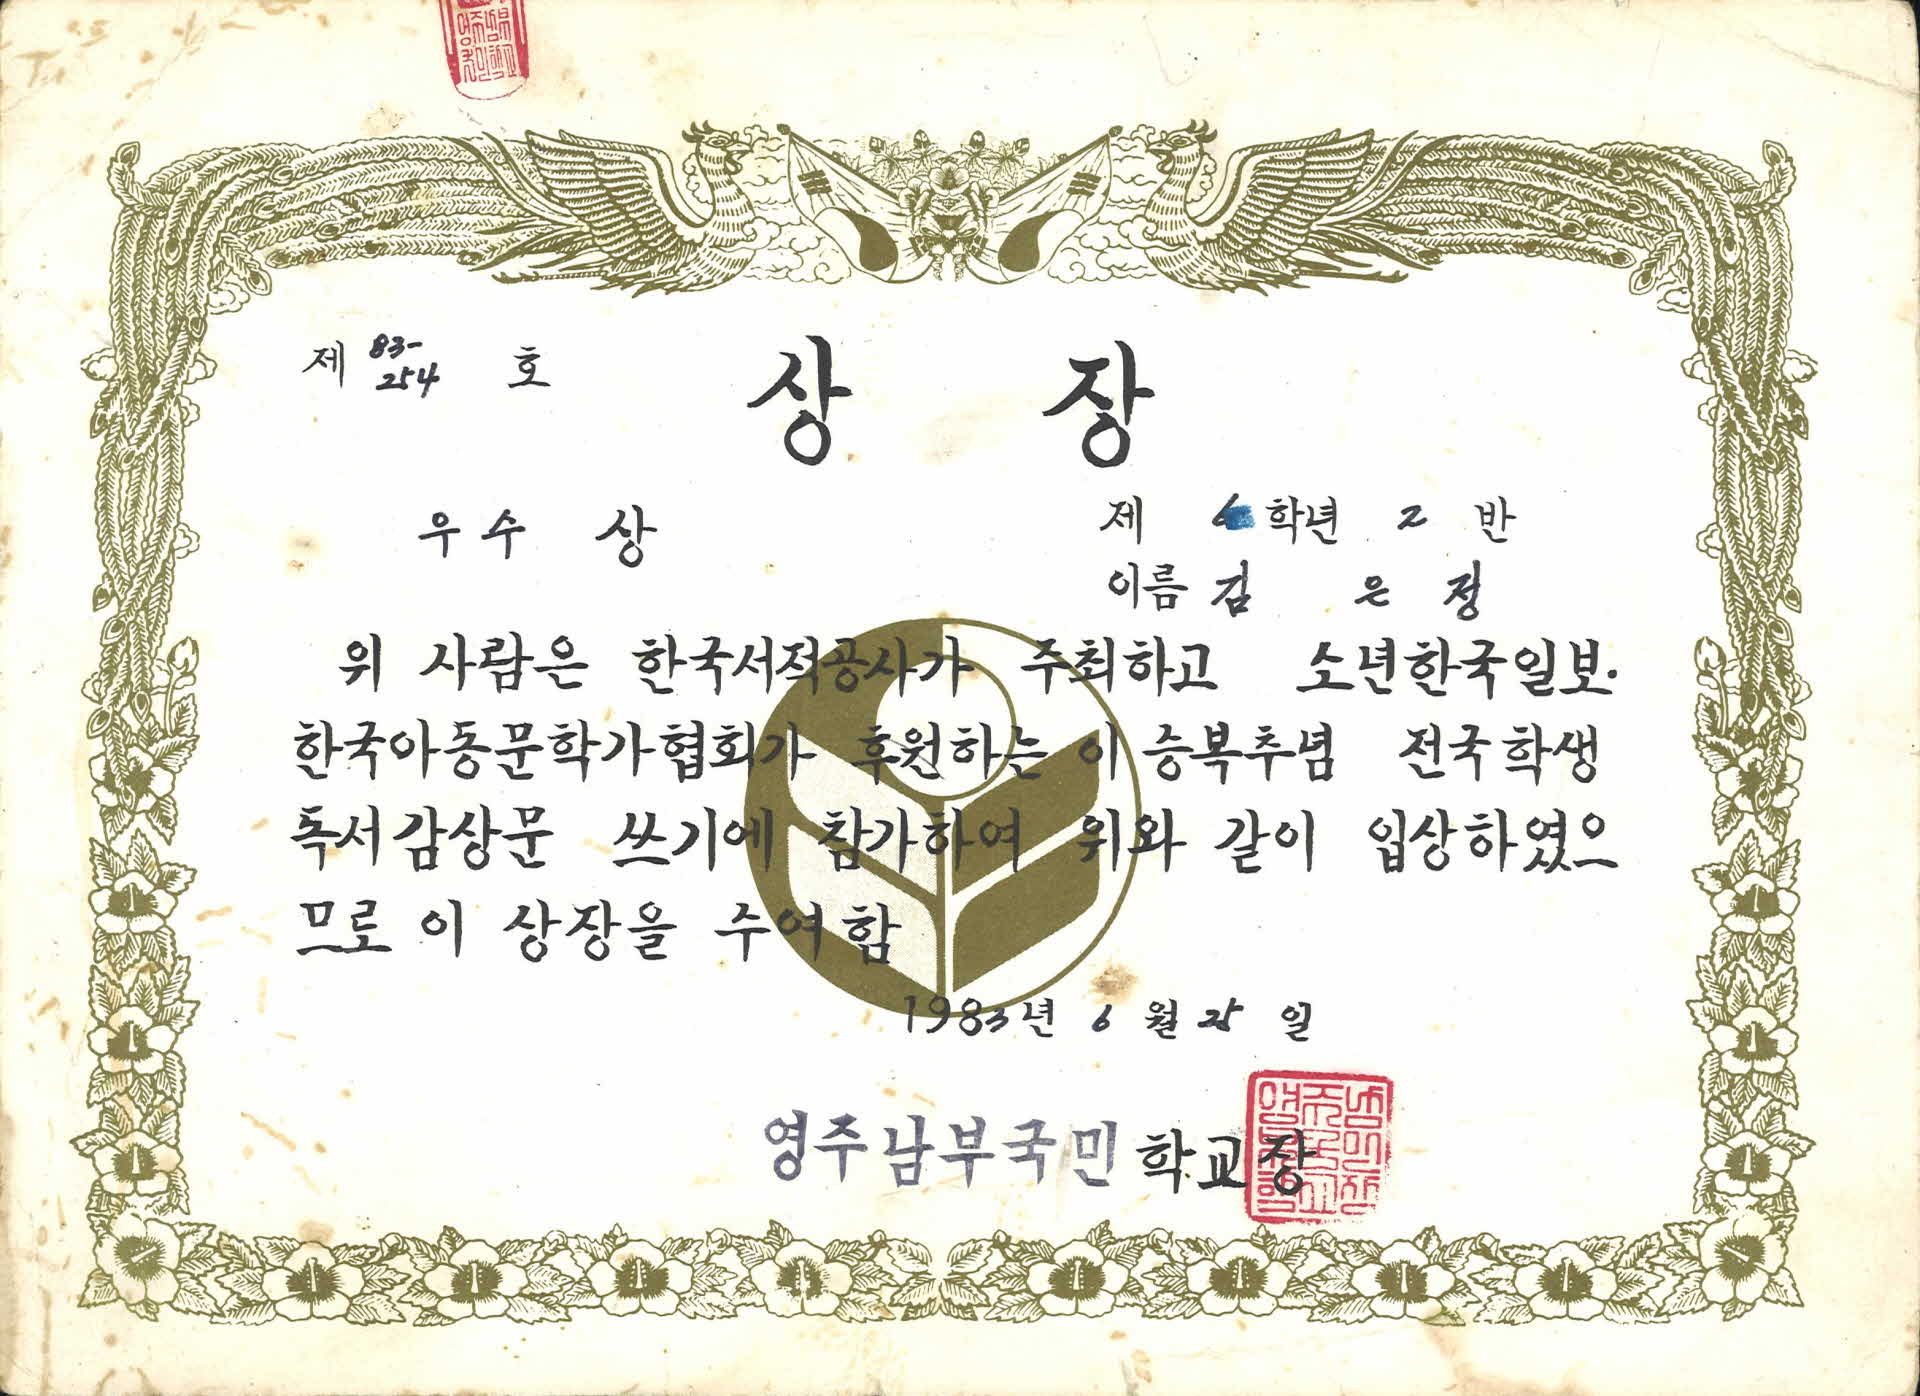 제 83-254 호
상 장
우수 상
제 6 학년 2 반
이름 김 은 정
위 사람은 한국서적공사가 주최하고 소년한국일보·
한국아동문학가협회가 후원하는 이승복추념 전국학생
독서감상문 쓰기에 참가하여 위와 같이 입상하였으
므로 이 상장을 주여함
1983년 6 월 25 일
영주남부국민 학교장